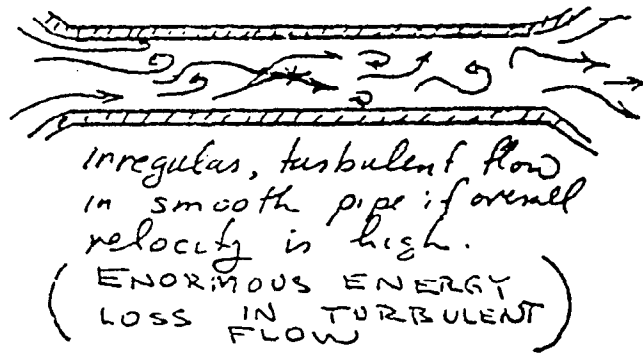 irregular, turbulent flow
in smooth pipe if overall
velocity is high.
(ENORMOUS ENERGY
LOSS IN TURBULENT
FLOW)